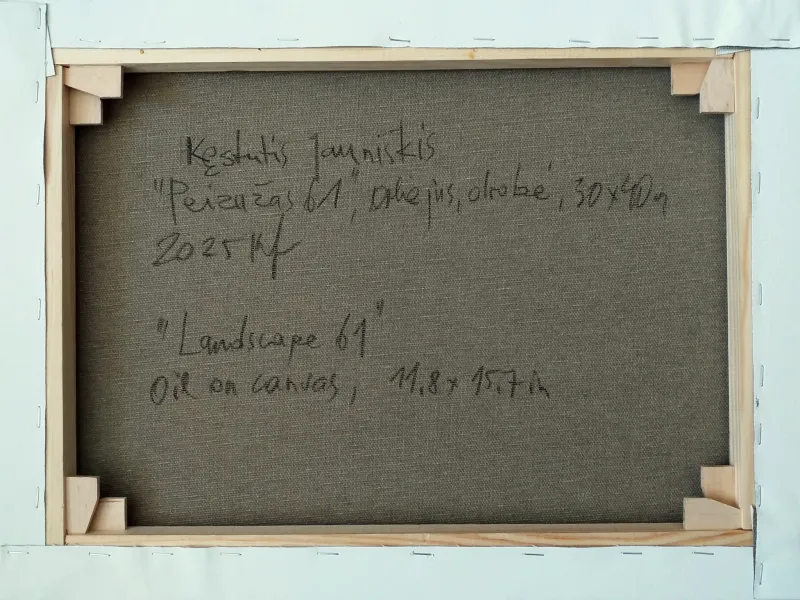 Kęstutis Jauniškis
"Peizažas 61", aliejus, drobė, 30x40
2025
"Landscape 61"
Oil on canvas, 11,8 x 15,7 in